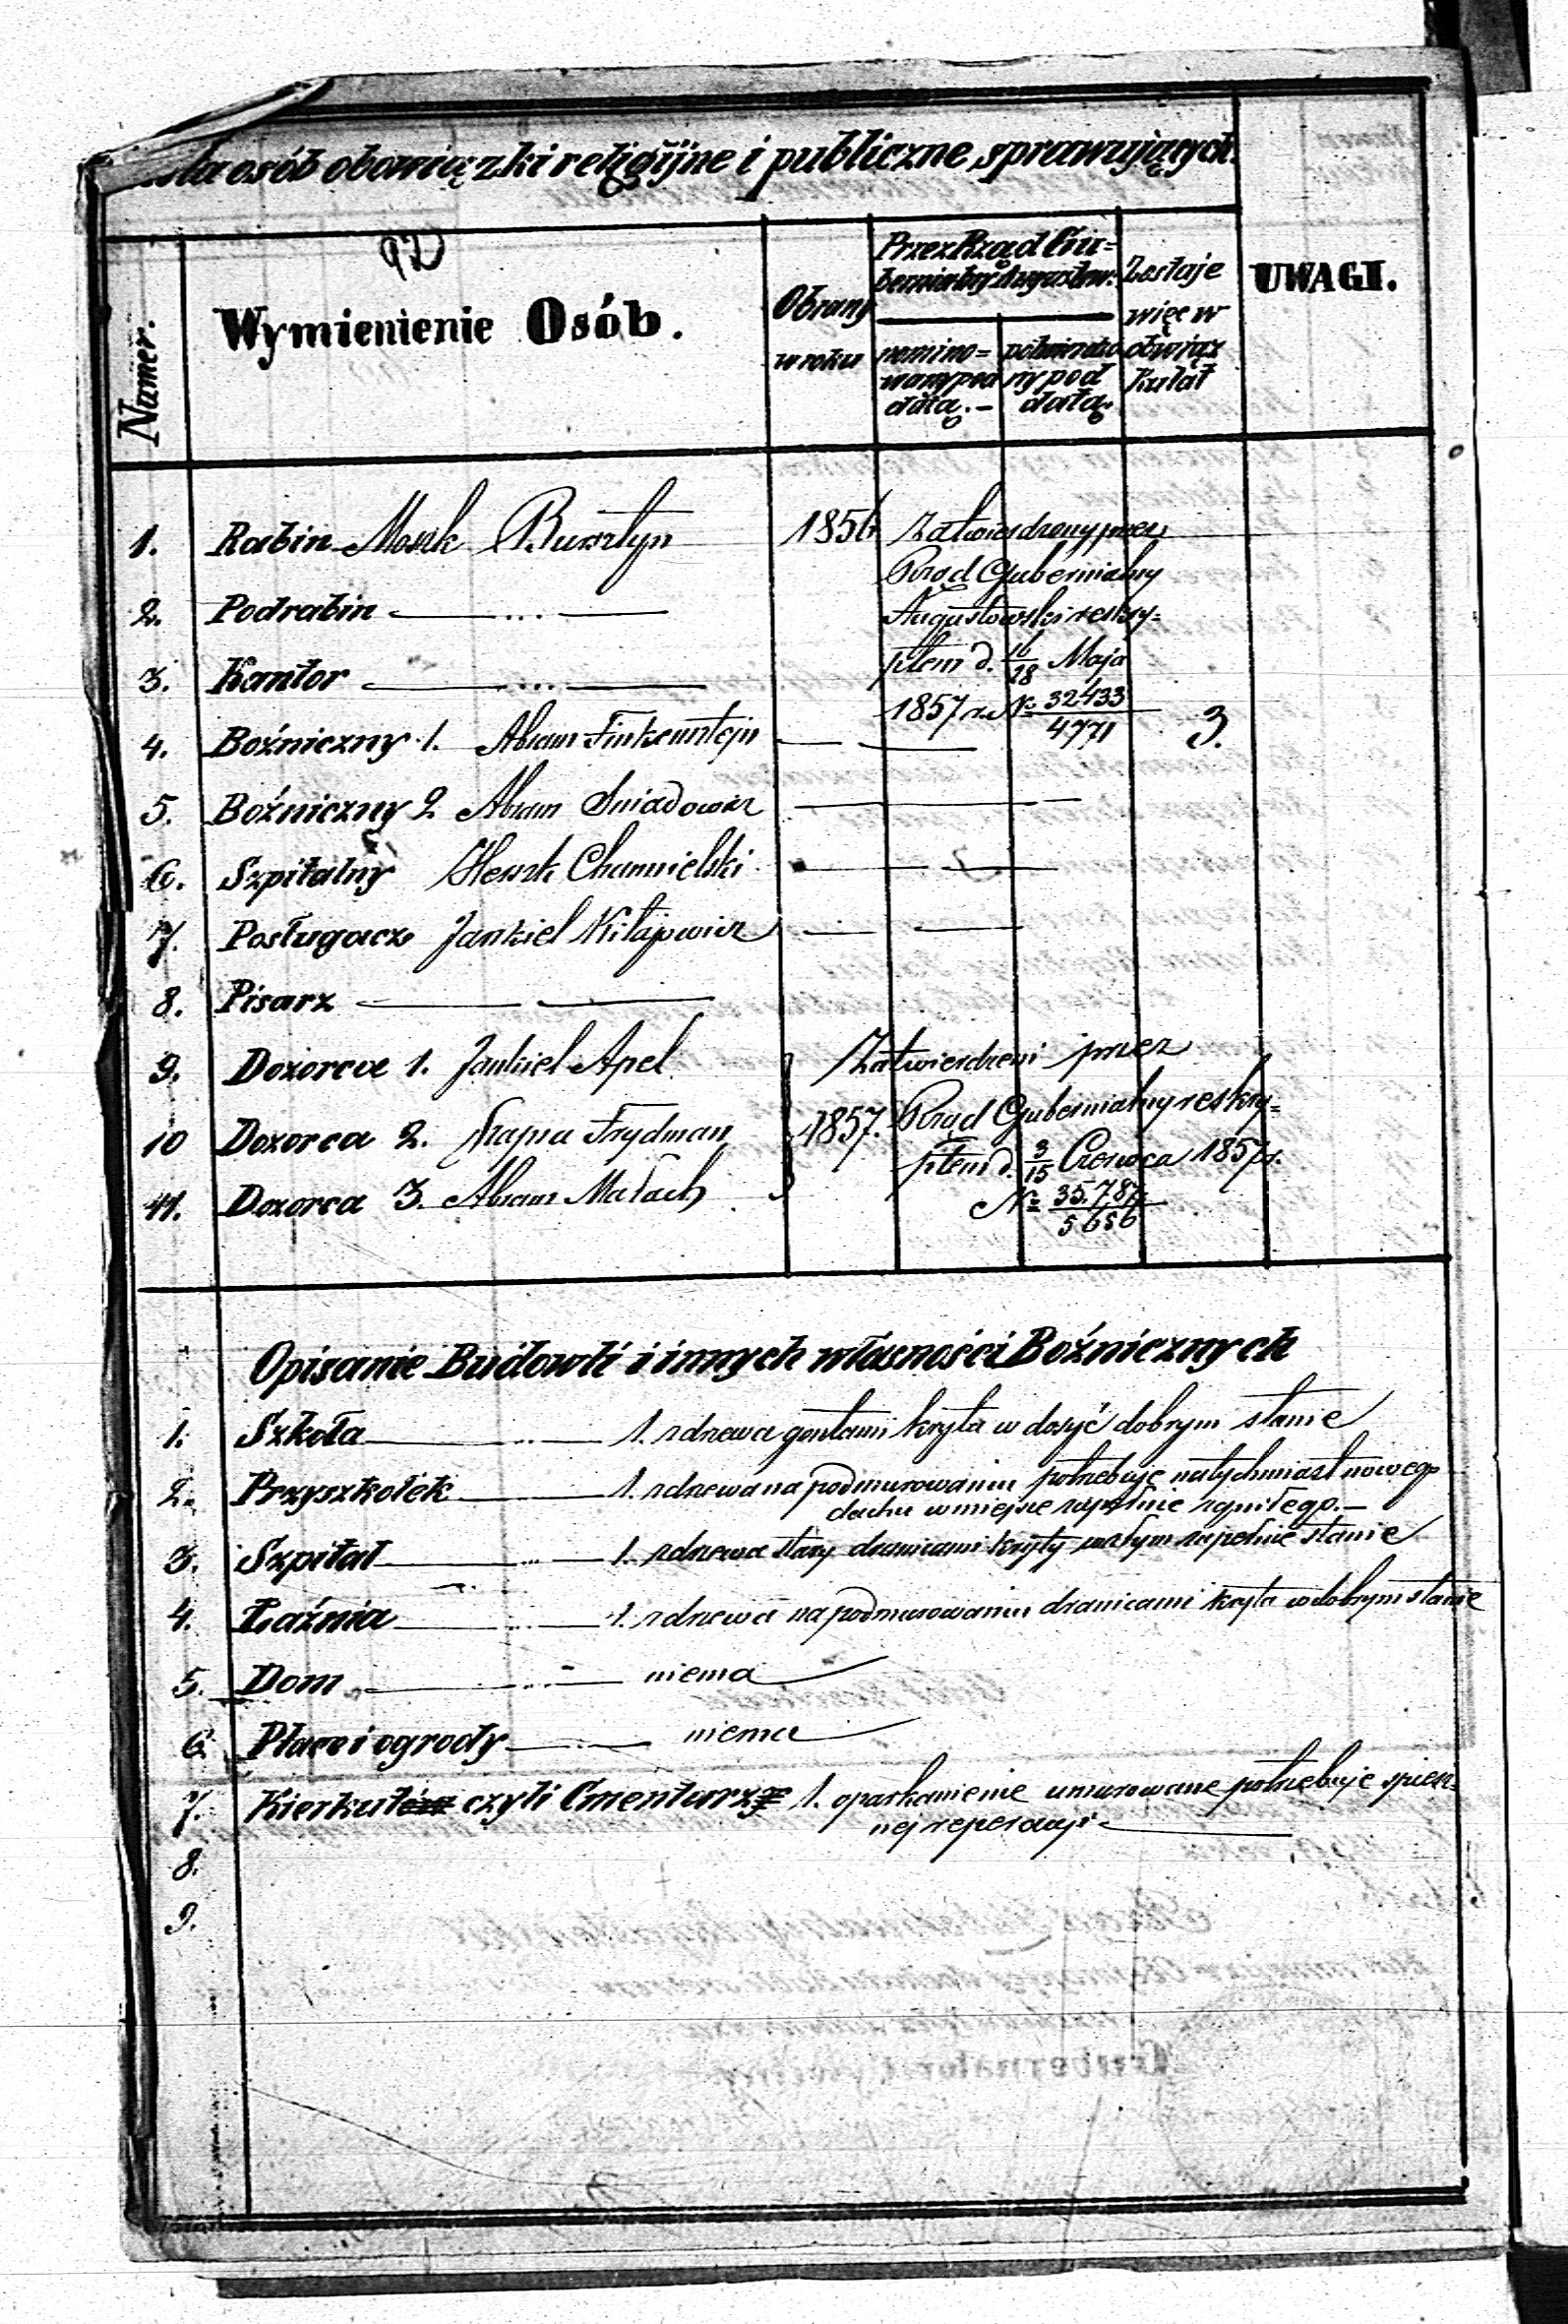 osób obowiązki religijne i publiczne sprawujących.
Numer.
Wymienienie Osób.
Obrany w roku
Przez Rząd Gubernialny Augustow:
nominowany pod datą.—
potwierdzony pod datą.
Zostaje więc w obowiązku lat
UWAGI.
1. Rabin Moszk Bursztyn 1856 Zatwierdzony przez
Rząd Gubernialny
2. Podrabin — ... — Augustowski reskry=
3. Kantor — ... — ptem d. 16/28 Maja
1857 r. № 32433/4771
4. Boźniczny 1. Abram Finkiensztejn — — 3.
5. Boźniczny 2 Abram Sniadowicz — —
6. Szpitalny Herszk Chamielski — —
7. Posługacz Jankiel Kitajewicz — —
8. Pisarz — —
9. Dozorca 1. Jankiel Apel Zatwierdzeni przez
10 Dozorca 2. Frydman 1857. Rząd Gubernialny reskry=
ptem d. 3/15 Czerwca 1857 r.
11. Dozorca 3. Abram Małach № 35.787/5656
Opisanie Budowli i innych własności Boźnicznych
1. Szkoła — ... — 1. z drzewa gontami kryta w dosyć dobrym stanie
2. Przyszkołek — ... — 1. z drzewa na podmurowaniu potrzebuje natychmiast nowego
dachu w miejsce zupełnie zgniłego.—
3. Szpital — ... — 1. z drzewa stary dranicami kryty w złym zupełnie stanie
4. Łaźnia — ... — 1. z drzewa na podmurowaniu dranicami kryta w dobrym stanie
5. Dom — ... — niema
6. Place i ogrody — ... — niema
7. Kierkut czyli Cmentarz 1. oparkanienie umurowane potrzebuje spiesz=
nej reperacyi —
8.
9.